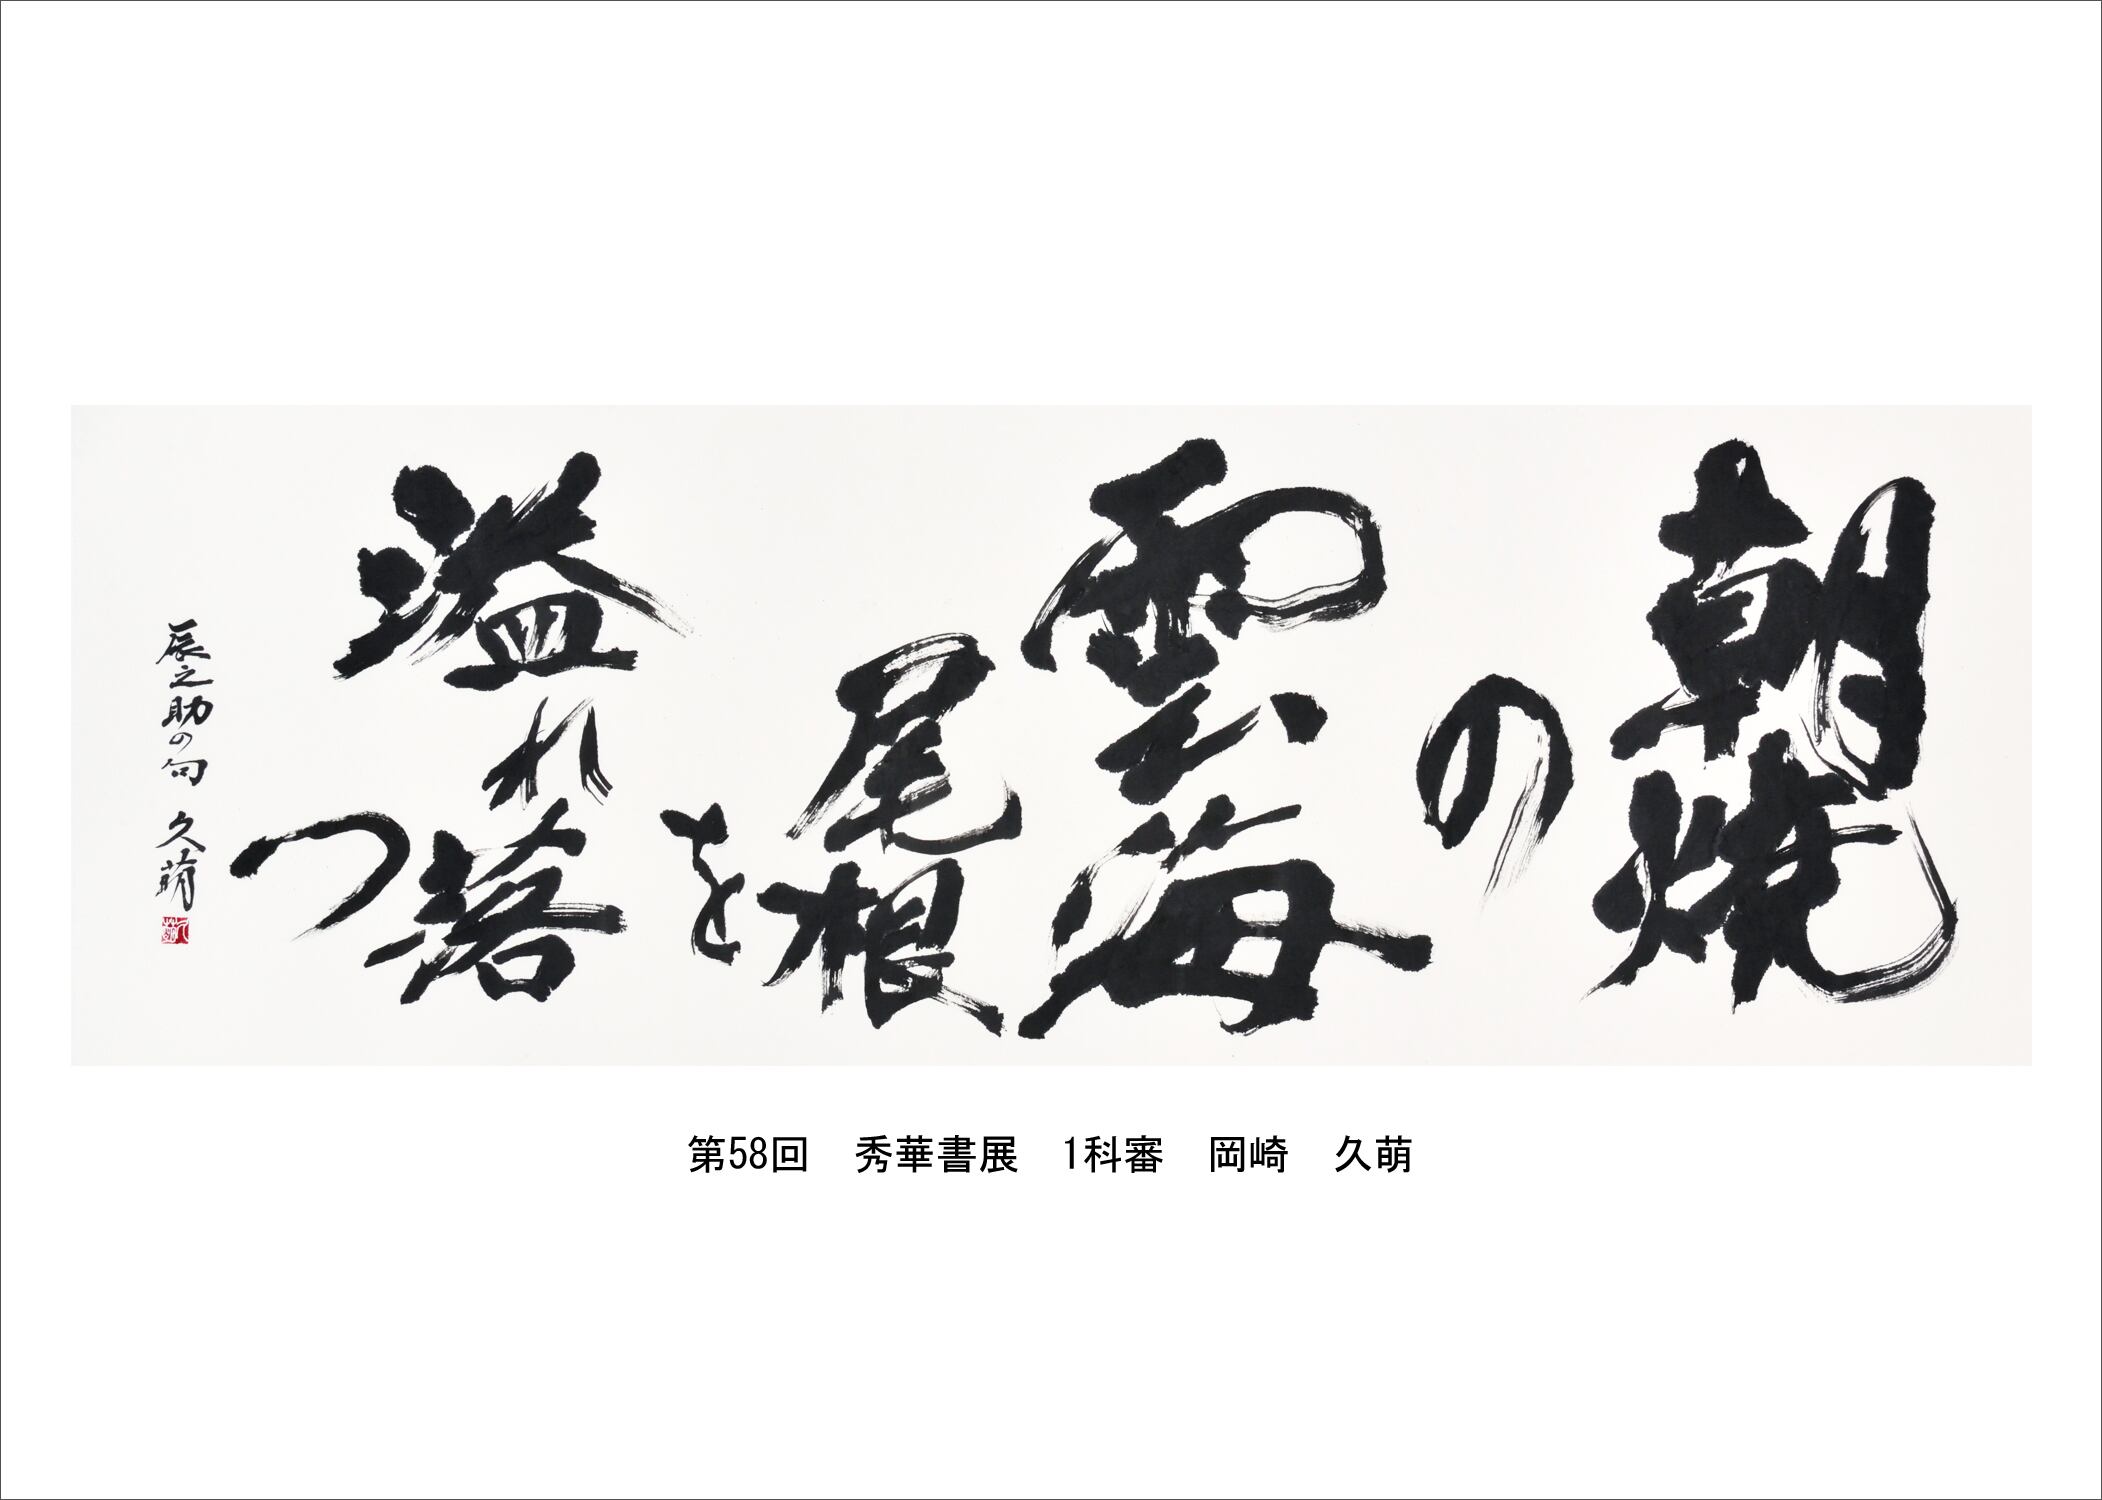 朝焼
の
雲海
尾根
を
溢れ落
つ
辰之助の句 久萌
第58回 秀華書展 1科審 岡崎 久萌